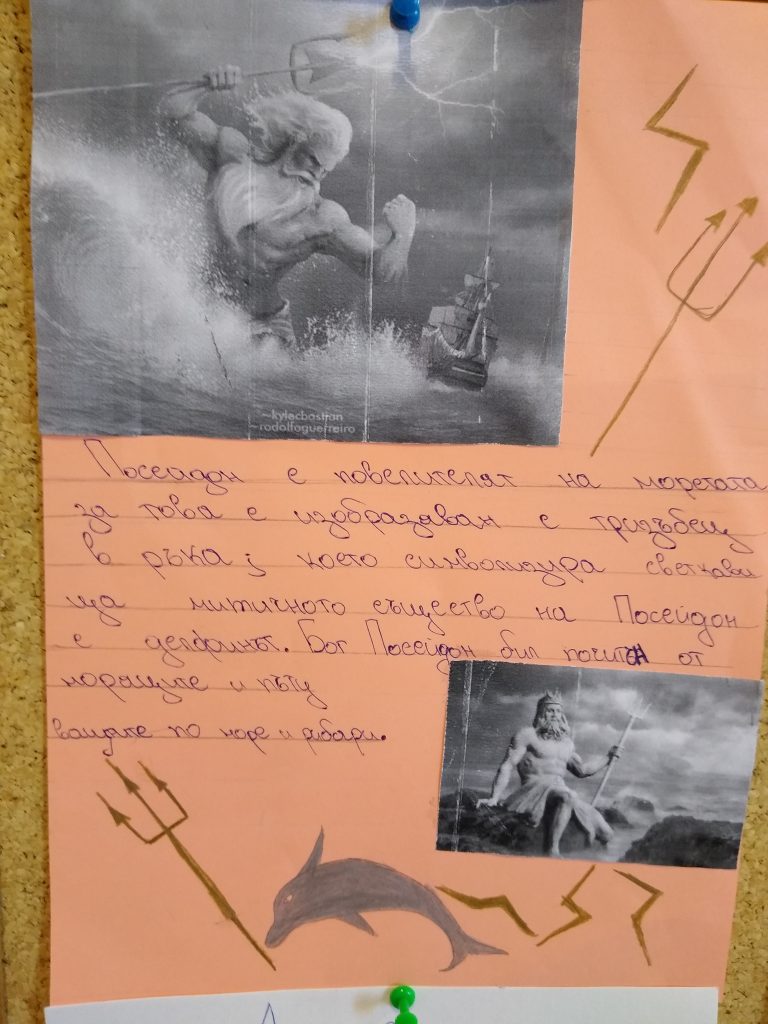 ~kylecbastian
~rodolfoguerreiro
Посейдон е повелителят на моретата
за това е изобразяван с тризъбец
в ръка; което символизира светкави
ца митичното същество на Посейдон
е делфинът. Бог Посейдон бил почитан от
моряците и пъту
ващите по море и рибари.